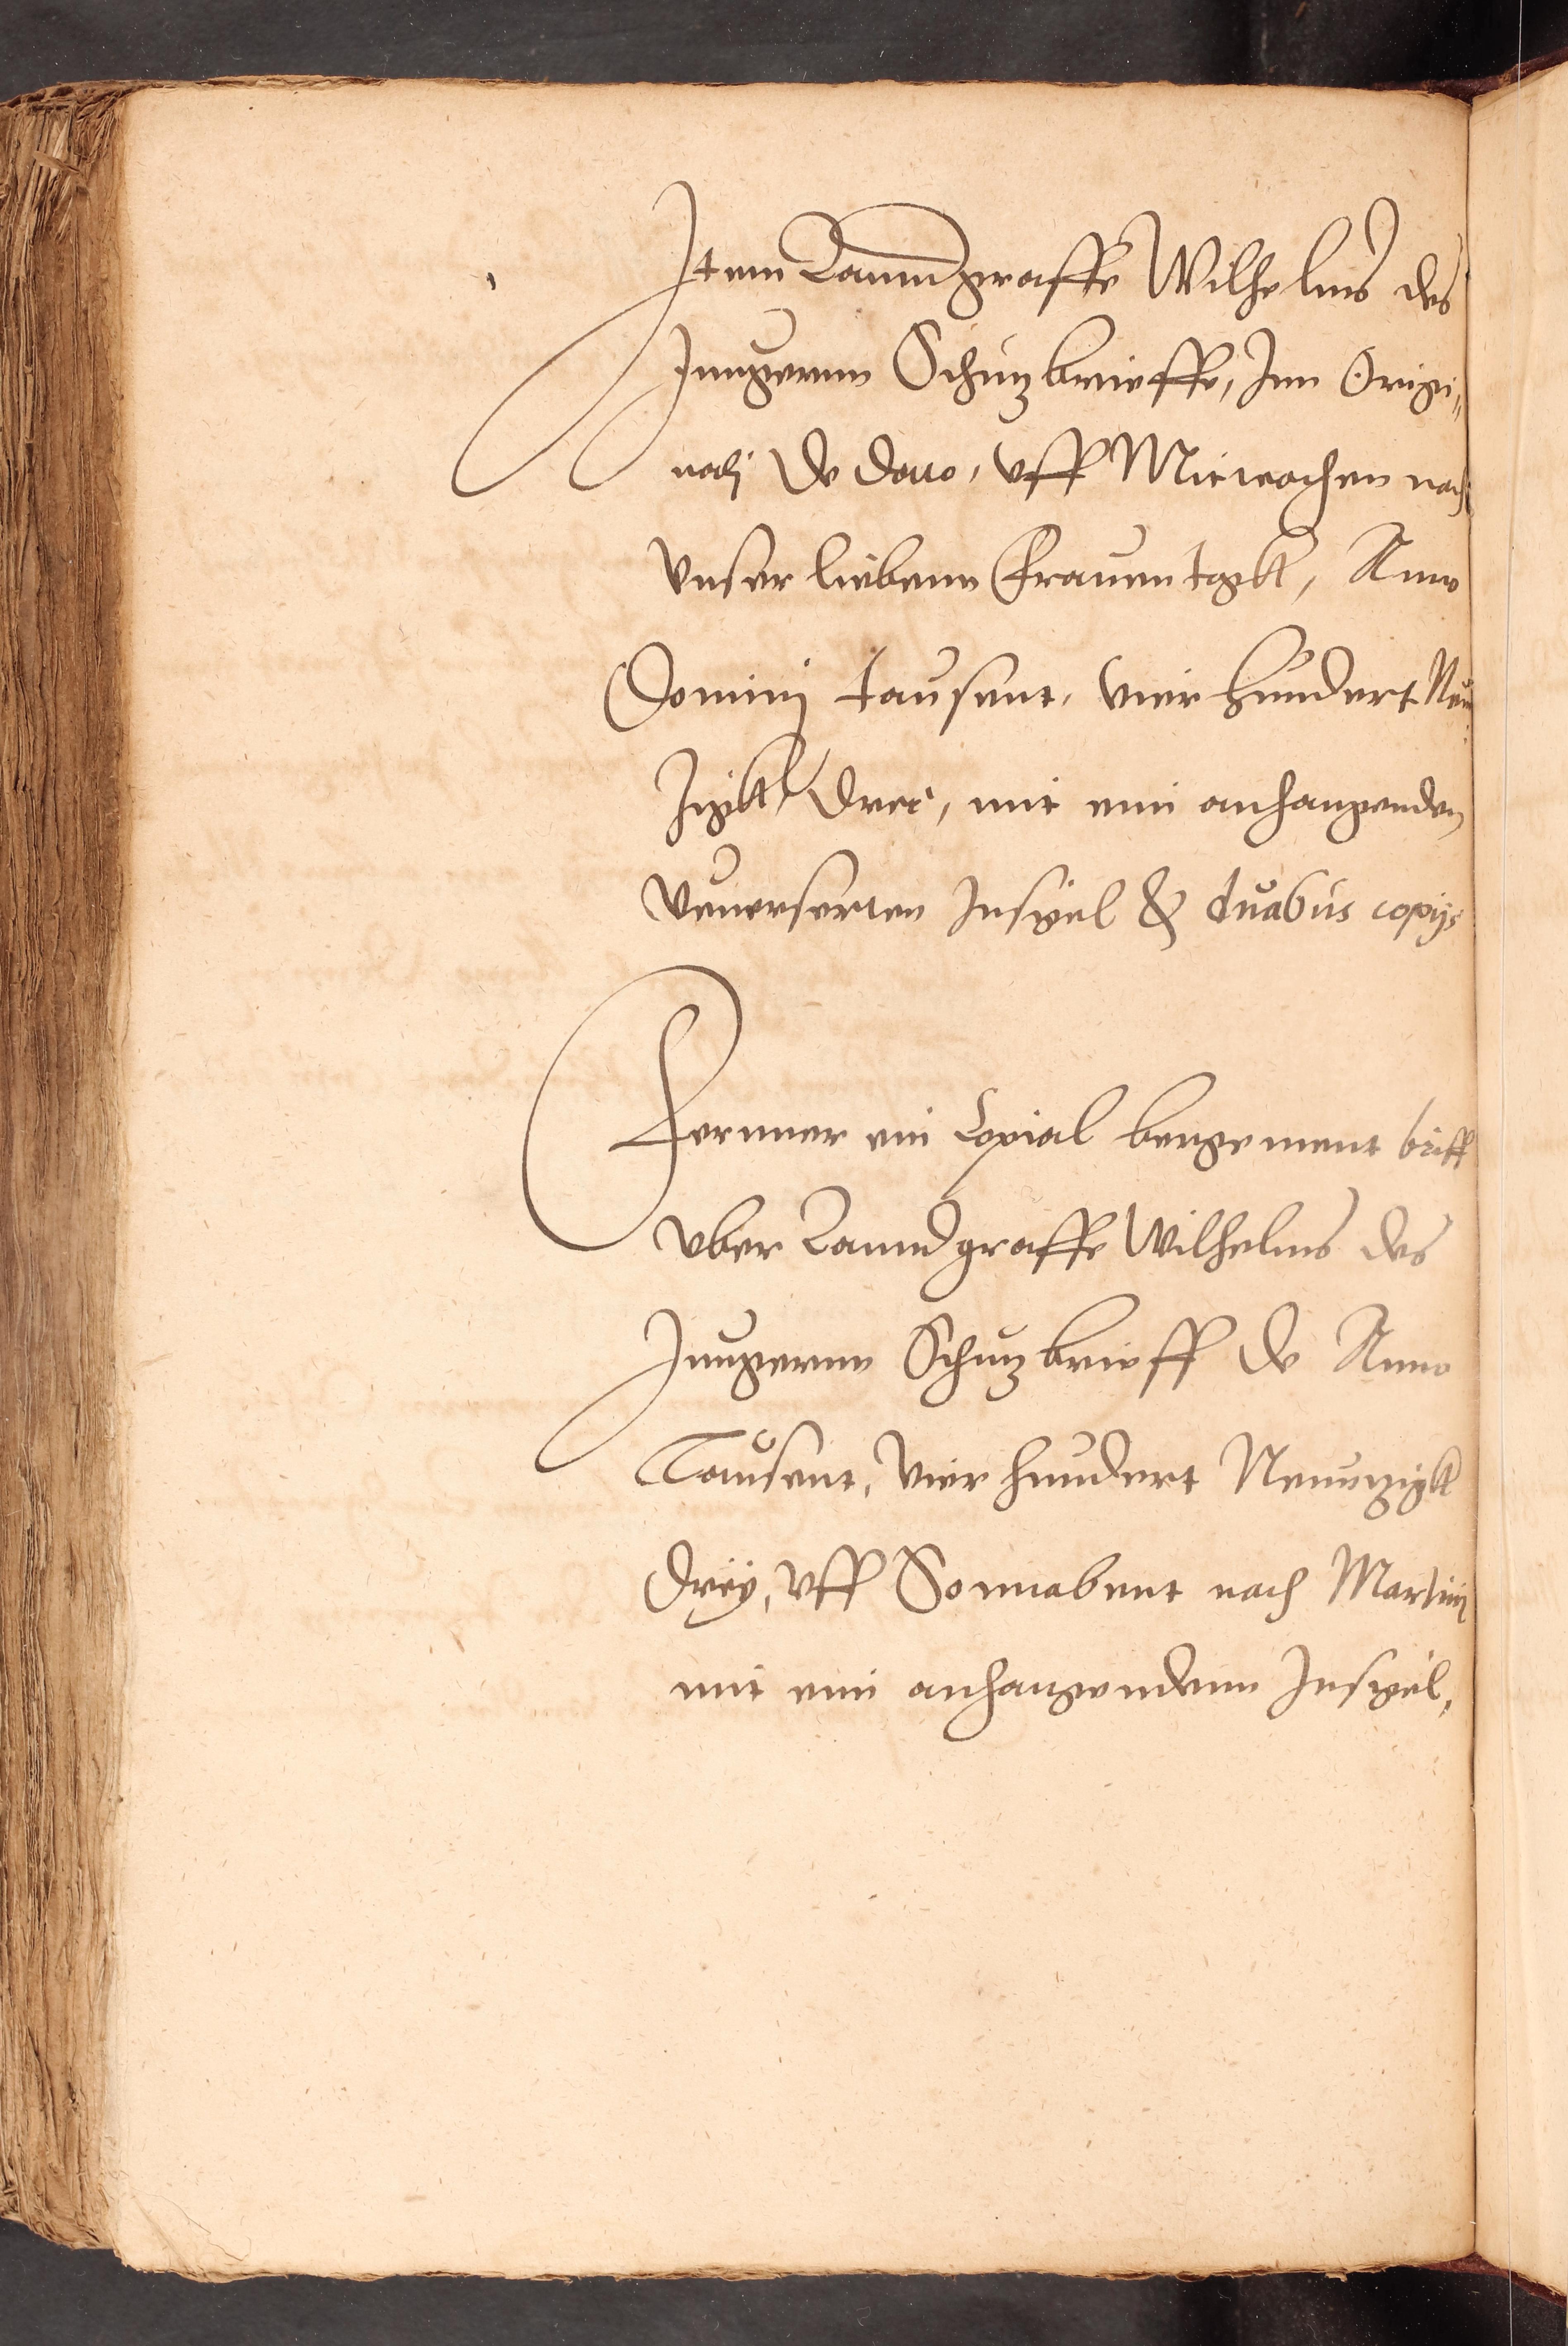 Item Lanndgraffe Wilhelms des
Jungernn Schutzbrieffe, Inn Origi⸗
nalj De Dato, vff Mitwochen nach
Vnser liebenn Frauen tagk, Anno
Dominj tausent, vier hundert Neun
Zigk Drei, mit eim anhangenden
Vnuerserten Insigel & duabus copijs
Fernner ein Copial bergement briff
vber Lanndgraffe Wilhelms des
Jungernn Schutzbrieff De Anno
Tausent, Vier hundert Neunzigk
Dreÿ, vff Sonnabent nach Martinj
mit eim anhangendenn Insigel,